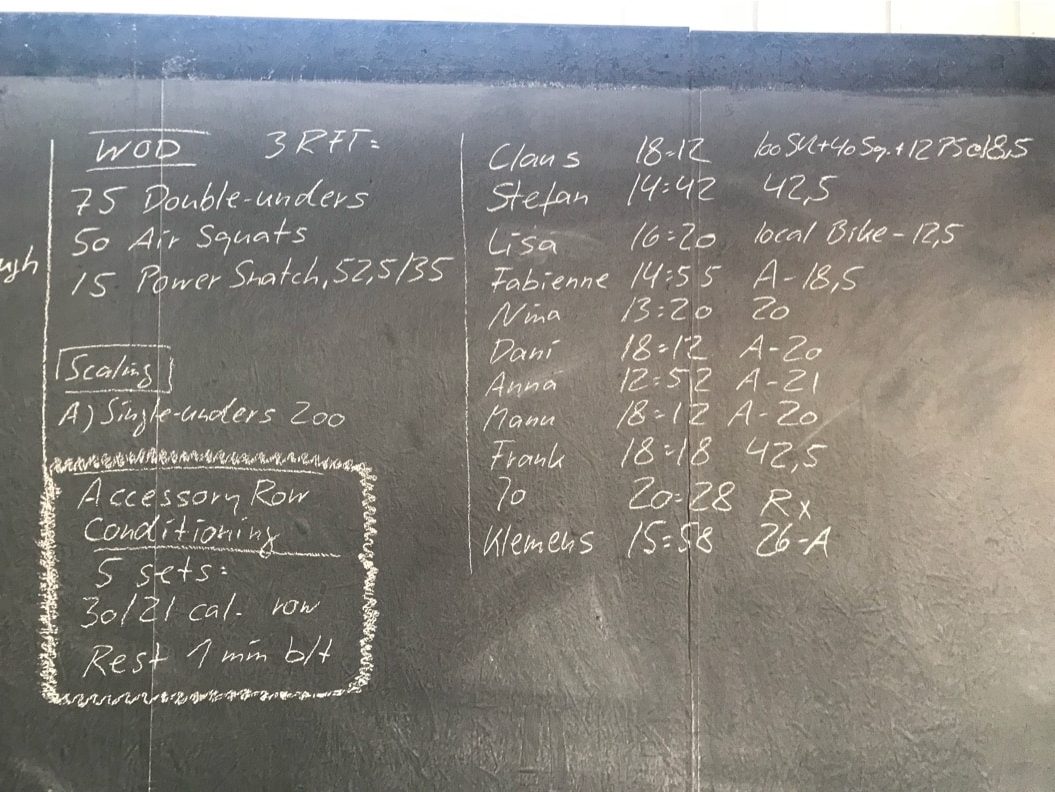 WOD 3 RFT:
75 Double-unders
50 Air Squats
15 Power Snatch, 52,5/35
Scaling
A) Single-unders 200
Accessory Row
Conditioning
5 sets:
30/21 cal. row
Rest 1 min b/t
Claus 18:12
Stefan 14:42 42,5
Lisa 16:20 local Bike - 12,5
Fabienne 14:55 A - 18,5
Nina 13:20 20
Dani 18:12 A - 20
Anna 12:52 A - 21
Manu 18:12 A - 20
Frank 18:18 42,5
Jo 20:28 Rx
Klemens 15:58 26 - A